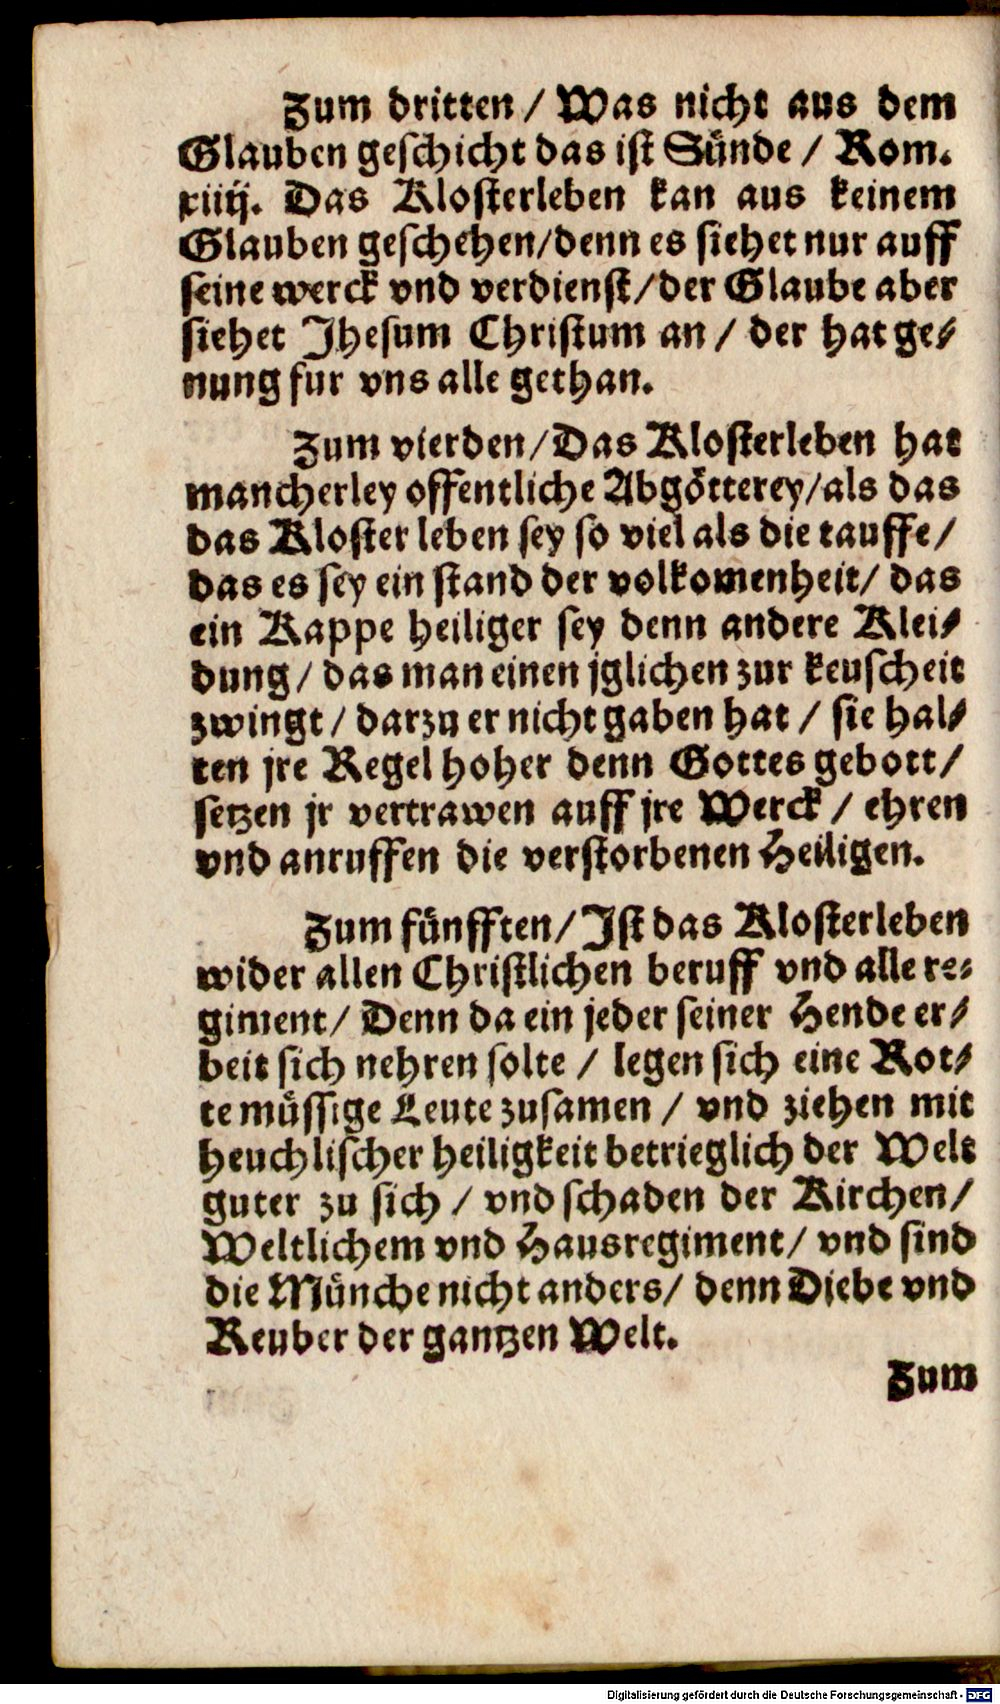 Zum dritten / Was nicht aus dem
Glauben geschicht das ist Sünde / Rom.
xiiij. Das Klosterleben kan aus keinem
Glauben geschehen/denn es siehet nur auff
seine werck vnd verdienst/der Glaube aber
siehet Jhesum Christum an / der hat ge-
nung fur vns alle gethan.
Zum vierden/Das Klosterleben hat
mancherley offentliche Abgötterey/als das
das Kloster leben sey so viel als die tauffe/
das es sey ein stand der volkomenheit/ das
ein Kappe heiliger sey denn andere Klei-
dung/ das man einen jglichen zur keuscheit
zwingt/ darzu er nicht gaben hat / sie hal-
ten jre Regel hoher denn Gottes gebott/
setzen jr vertrawen auff jre Werck / ehren
vnd anruffen die verstorbenen Heiligen.
Zum fünfften/ Jst das Klosterleben
wider allen Christlichen beruff vnd alle re-
giment/ Denn da ein jeder seiner Hende er-
beit sich nehren solte / legen sich eine Rot-
te müssige Leute zusamen / vnd ziehen mit
heuchlischer heiligkeit betrieglich der Welt
guter zu sich / vnd schaden der Kirchen/
Weltlichem vnd Hausregiment/ vnd sind
die Münche nicht anders/ denn Diebe vnd
Reuber der gantzen Welt.
Zum
Digitalisierung gefördert durch die Deutsche Forschungsgemeinschaft - DFG